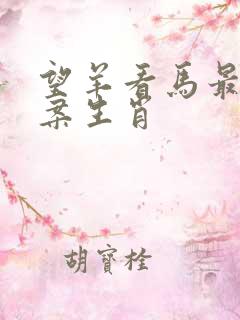 望羊看馬最
案生肖
胡寶栓